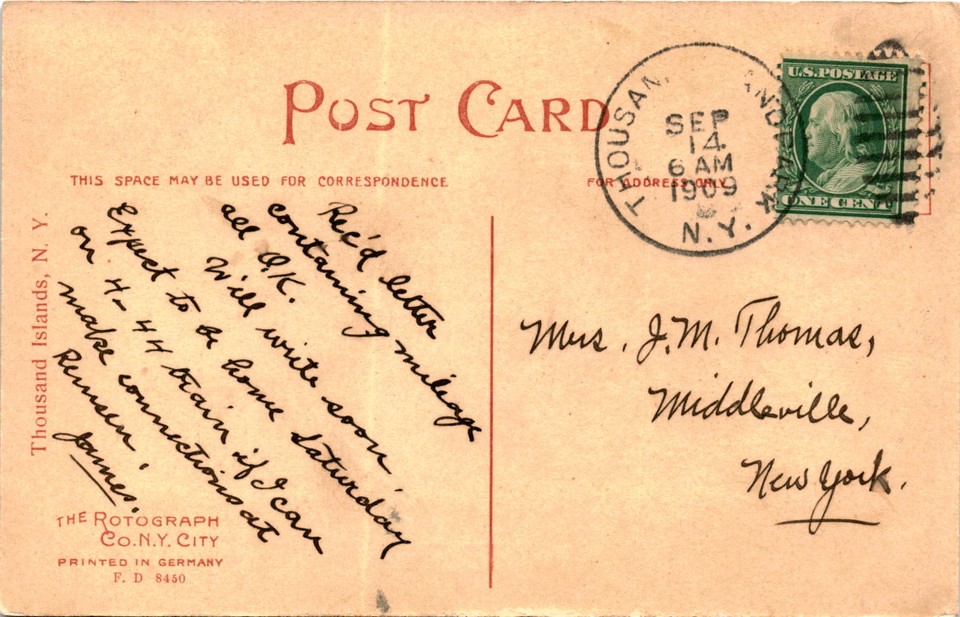 POST CARD
THIS SPACE MAY BE USED FOR CORRESPONDENCE
FOR ADDRESS ONLY
THOUSAN
SEP
14
6 AM
1909
N.Y.
U.S. POSTAGE
ONE CENT
Rec'd letter
containing mileage
all O.K.
Will write soon.
Expect to be home Saturday
on 4-44 train if I can
make connections at
Remsen.
James.
Mrs. J.M. Thomas,
Middleville,
New York.
Thousand Islands, N. Y.
THE ROTOGRAPH
CO. N.Y. CITY
PRINTED IN GERMANY
F. D 8450